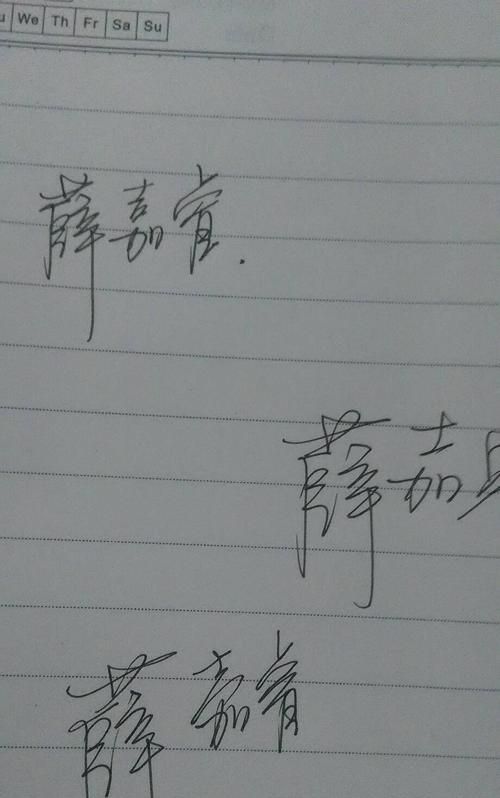 We Th Fr Sa Su
薛嘉
薛嘉
薛嘉